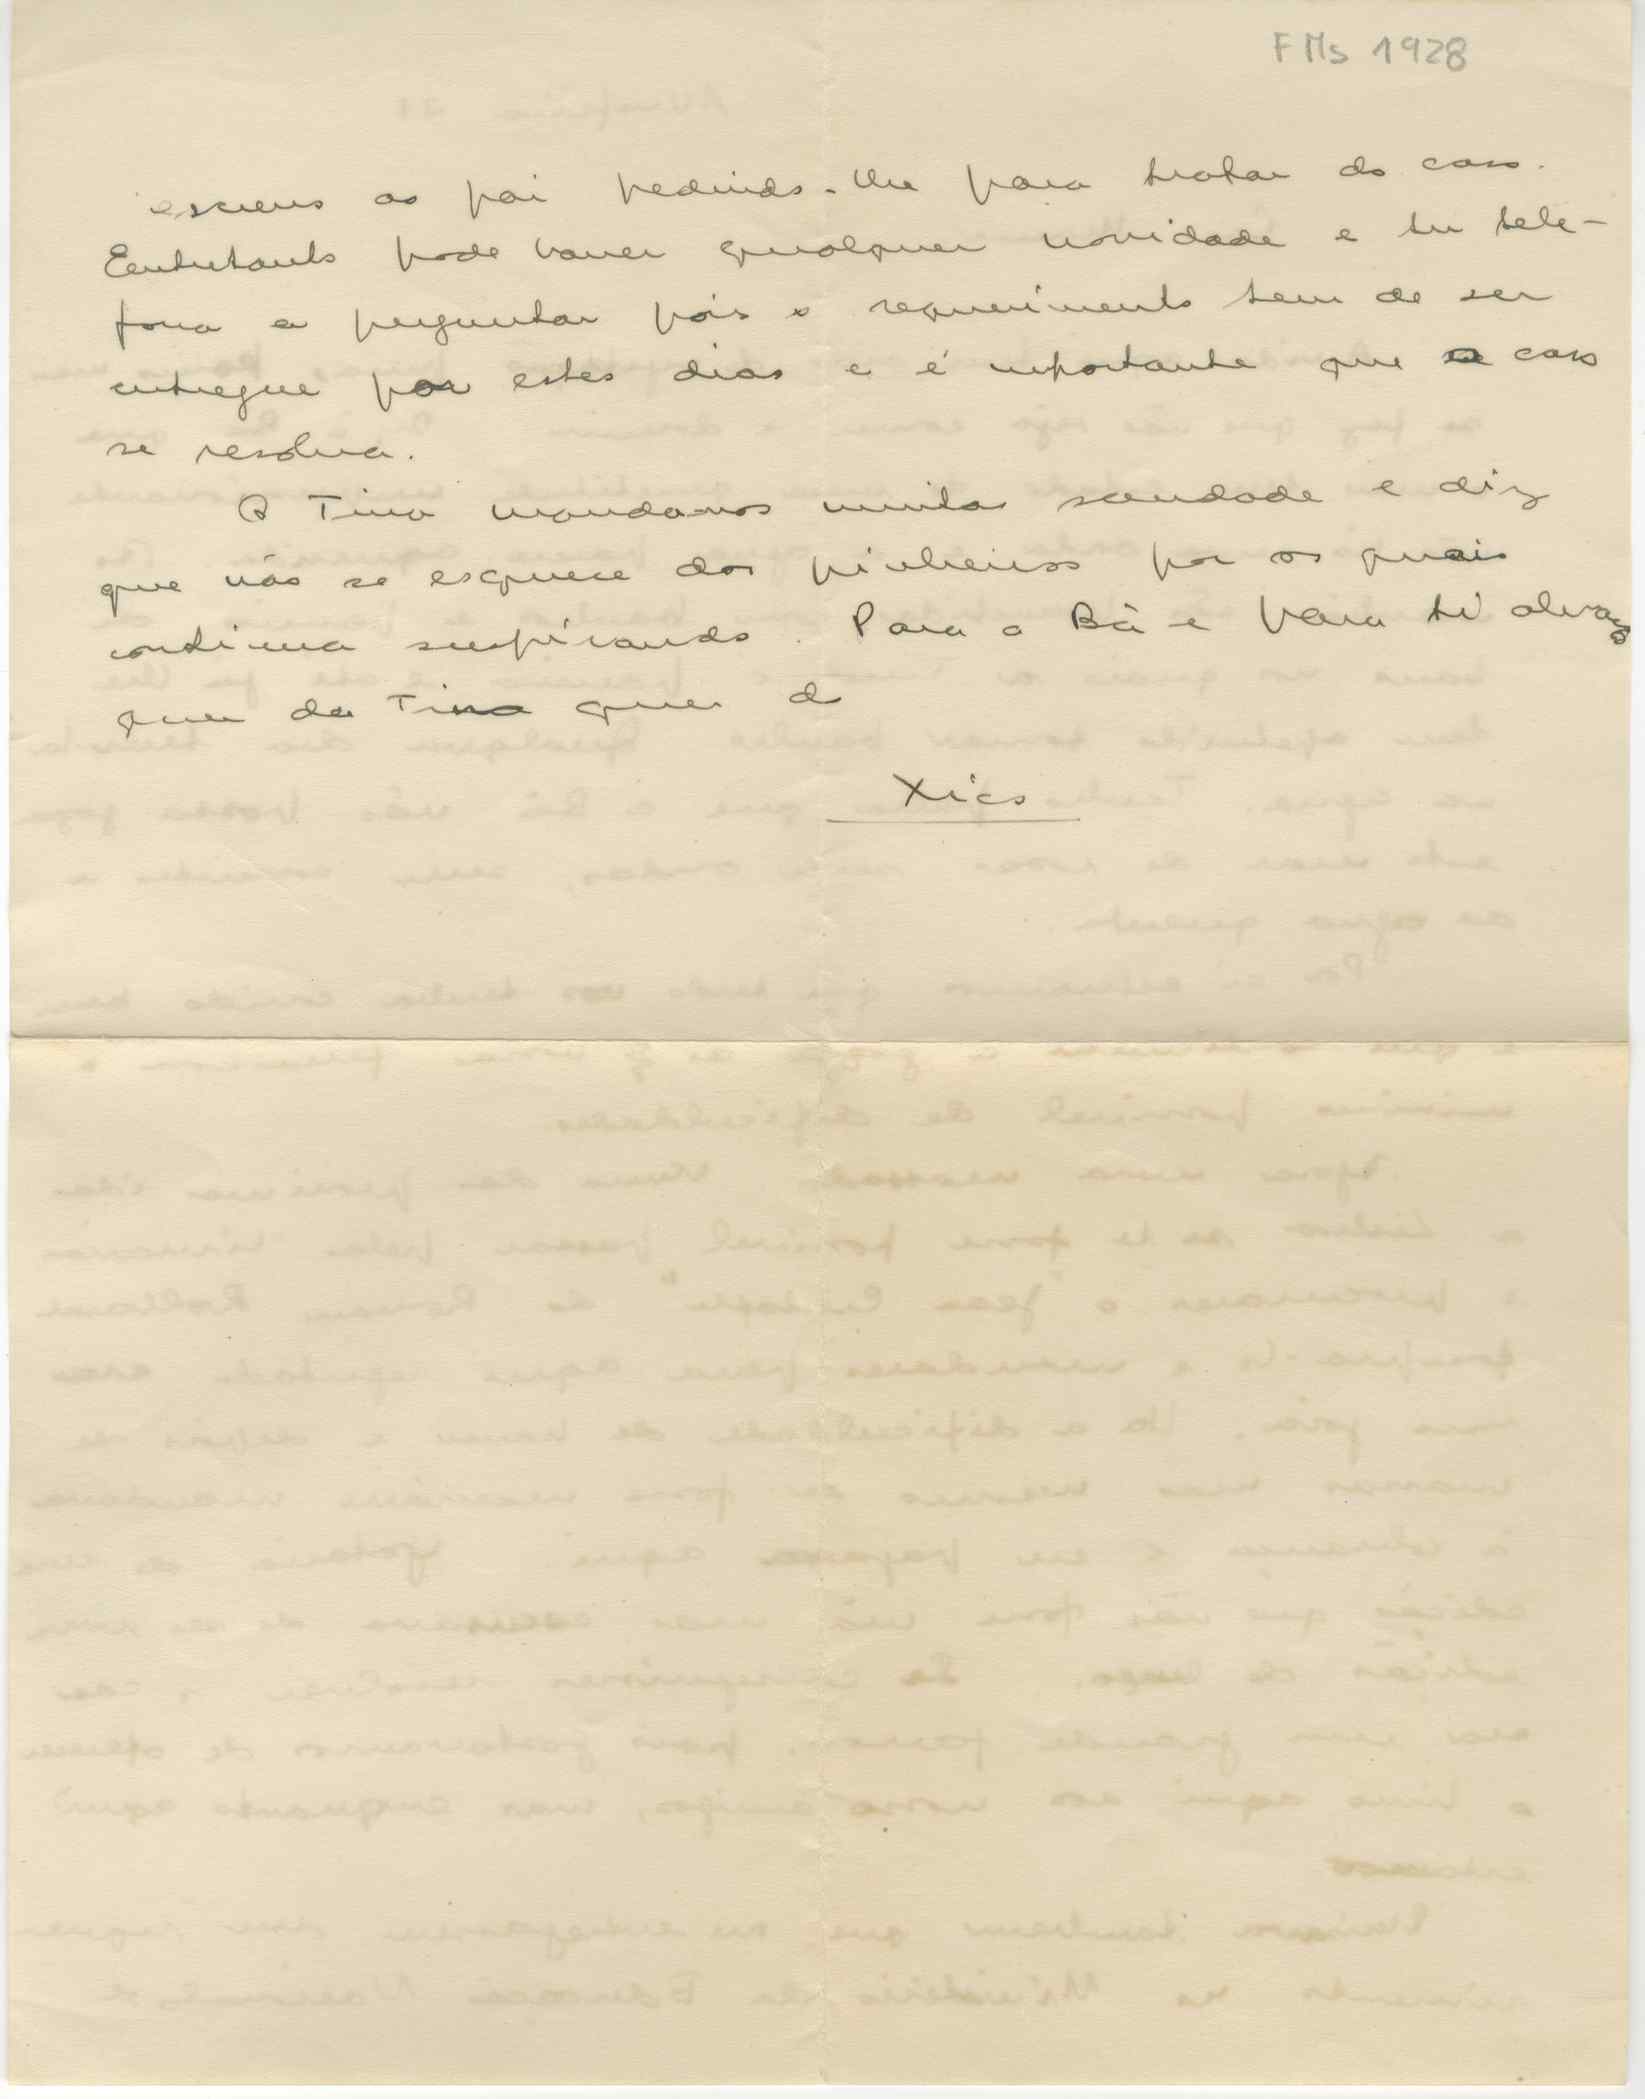 FMs 1928
escrevo ao pai pedindo-lhe para tratar do caso.
Eentretanto pode haver qualquer novidade e tu tele-
fona a perguntar pois o requerimento tem de ser
entregue por estes dias e é importante que o caso
se resolva.
A Tina manda-nos muitas saudade e diz
que não se esquece dos pinheiros por os quais
continua suspirando. Para a Bá e para ti abraços
quer da Tina quer do
Xico